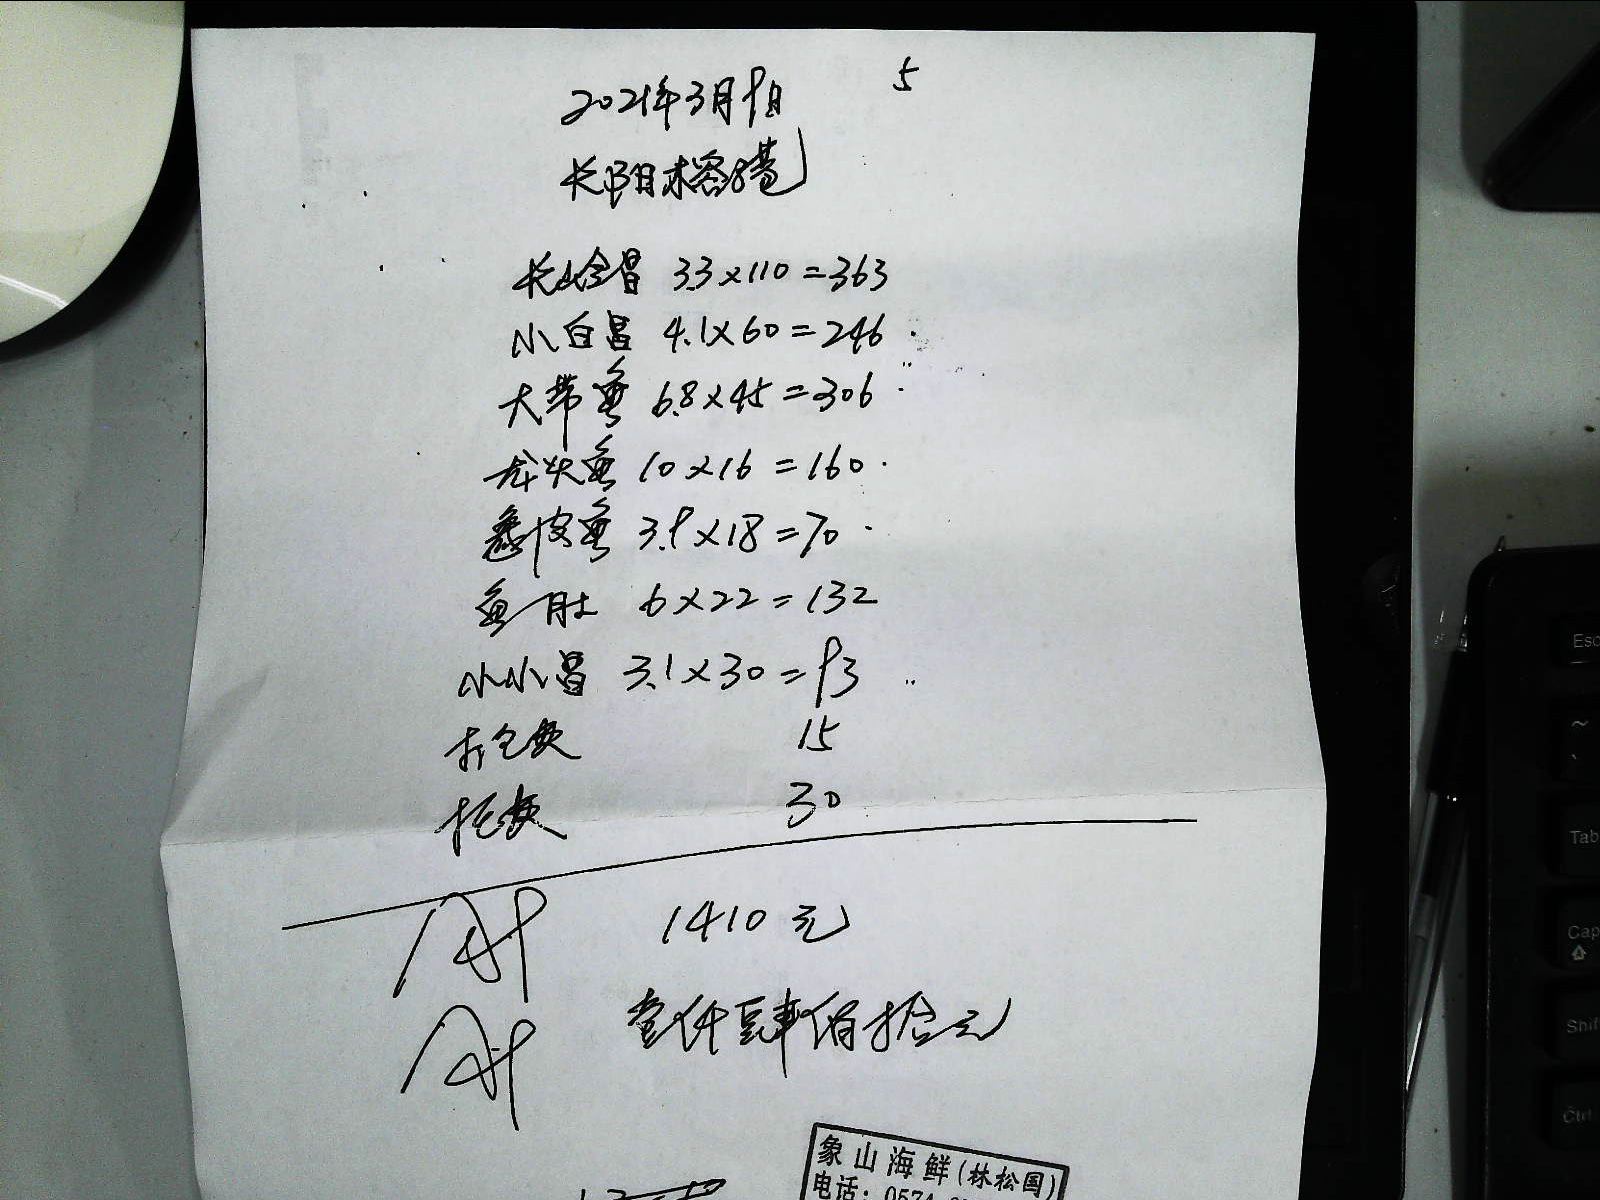 2021年3月9日 5
长阳木容搭
长山仓昌 3.3×110=363
小白昌 4.1×60=246
大带鱼 6.8×45=306
龙头鱼 10×16=160
皮鱼 3.9×18=70
鱼肚 6×22=132
小小昌 3.1×30=93
打包费 15
托费 30
1410元
壹仟肆佰拾元
象山海鲜(林松国)
电话:0574
Esc
~
`
Tab
Cap
Shif
Ctrl